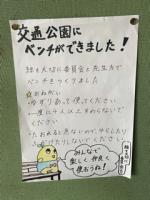 交通公園に
ベンチができました!
緑を大切に委員会と先生方で
ベンチをつくりました
おねがい
・ゆずりあって使ってください
・一度に4人以上すわらないで
ください
・たおれると危ないので、
ください
みんなで
楽しく仲良く
使おうね!